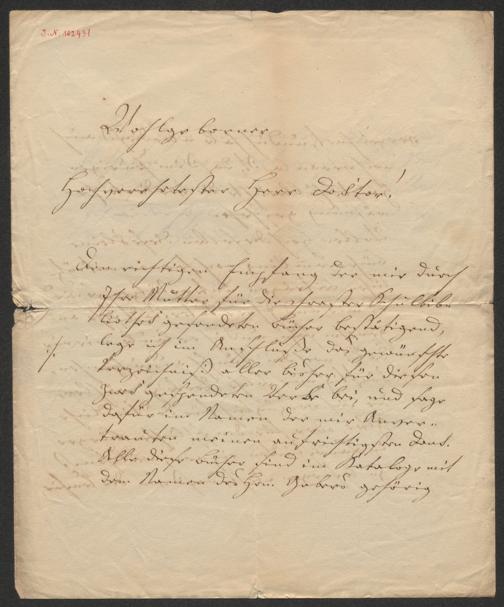 I.N. 102431
Wohlgeborner
Hochverehrtester Herr Doktor!
Den richtigen Empfang der mir durch
Ihre Mutter für die Schulbib-
liothek gesendeten Bücher bestätigend,
lege ich im Anschluße das gewünschte
./. Verzeichniß aller bisher für diesen
Zweck gespendeten Werke bei, und sage
dafür im Namen der mir Anver-
trauten meinen aufrichtigsten Dank.
Alle diese Bücher sind im Kataloge mit
dem Namen des Hrn. Gebers gehörig